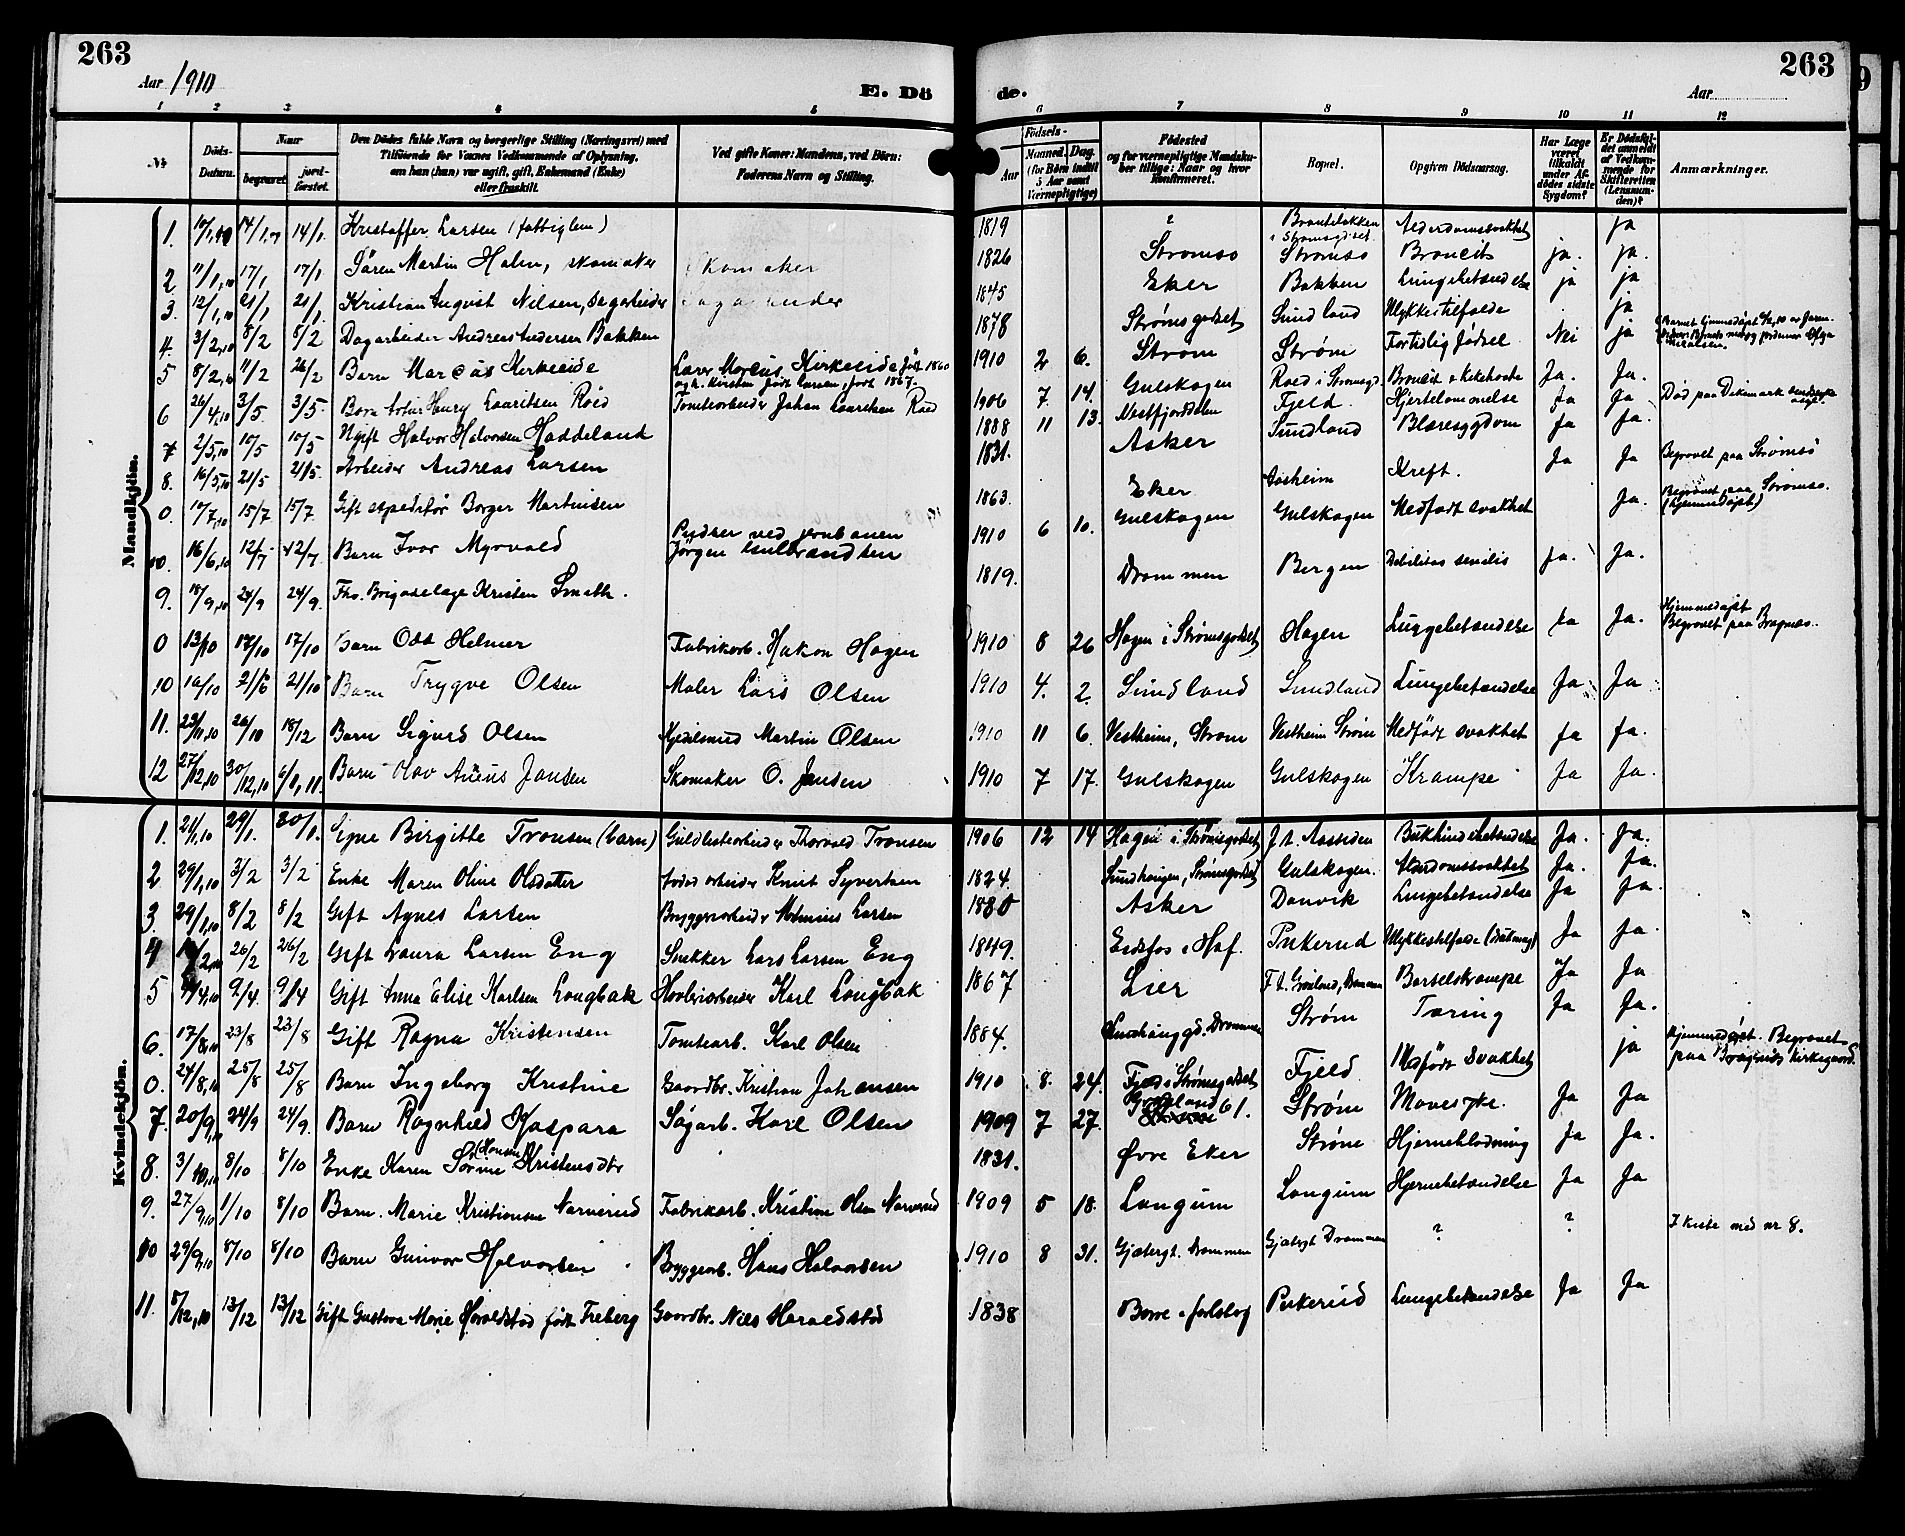 263
263
Aar 1910
E. Dö de.
Aar
1 2 3 4 5 6 7 8 9 10 11 12
№ Döds-Datum. Naar begravet jordfæstet.
Den Dödes fulde Navn og borgerlige Stilling (Næringsvei) med Tilföiende for Voxnes Vedkommende af Oplysning, om han (hun) var ugift, gift, Enkemand (Enke) eller fraskilt.
Ved gifte Koner: Mandens, ved Börn: Faderens Navn og Stilling.
Födsels- Aar Maaned. Dag. (for Börn indtil 5 Aar samt Værnepligtige)
Födested og for værnepligtige Mandskaber tillige: Naar og hvor Konfirmeret.
Bopæl.
Opgiven Dödsaarsag.
Har Læge været tilkaldt under Afdödes sidste Sygdom?
Er Dödsfaldet anmeldt af Vedkommende for Skifteretten (Lensmanden)?
Anmærkninger.
Mandkjön.
1. 14/1. 14/1. Kristoffer Larsen (fattiglem) 1819 ? i Strømsgodset Alderdomssvakhet ja
2 11/1,10 17/1 17/1 Sören Martin Holm, skomaker Skomaker 1826 Strømsø Strømsø Broncit ja. ja.
3. 12/1,10 21/1 21/1. Kristian August Nilsen, Dagarbeider 1845 Eker Bakken Lungebetændelse ja ja
4. 3/2,10 8/2 8/2 Dagarbeider Andreas Andersen Bakken 1878 Strømsgodset Sundland Ulykkestilfælde ja
5 8/2,10 11/2 26/2 Barn Marcus Kirkeside Lars Marcus Kirkeside født 1860 og h. Kirsten født Larsen, født 1867. 1910 2 6. Strøm Strøm Fortidlig fødsel Nei ja
6 26/4,10 3/5. 3/5. Barn Artur Henry Lauritsen Röed Tomtearbeider Johan Lauritsen Röed 1906 7. 14. Gulskogen Röed i Strømsgd. Broncit o kikhoste Ja. Ja.
7 2/5,10 10/5 10/5 Ugift Halvor Halvorsen Haddeland 1888 11 13. Vestfjorddalen Fjeld. Hjertelammelse Ja Ja Död paa Dikemark
8. 16/5,10 21/5 21/5. Arbeider Andreas Larsen 1831. Asker Sundland Blæresygdom Ja Ja.
0. 10/7,10 15/7 15/7. Gift expeditør Borger Martinsen 1863. Eker Kreft. Ja Ja Begravet paa Strømsø
10. 16/6,10 12/7 12/7 Barn Ivar Myrvold Pudser ved jernbanen Jörgen Gulbrandsen 1910 6 10. Gulskogen Gulskogen Medfødt svakhet Ja. Begravet paa Strømsø. (hjemmedøpt)
9. 18/9,10 24/9 24/9. Fhv. Brigadelæge Kristen Smith. 1819. Drammen Bergen Debilitas senilis Ja. Ja.
0 13/10 17/10 17/10 Barn Odd Helmer Fabrikarb. Hakon Hagen 1910 8 26 Hagen i Strømsgodset Hagen Lungebetændelse Ja Ja. Hjemmedøpt Begravet paa Bragnæs.
10 19/10 21/10 Barn Trygve Olsen Maler Lars Olsen 1910 4. 2. Sundland Sundland Lungebetændelse Ja Ja
11. 23/11,10 18/12 Barn Sigurd Olsen Kjedelsmed Martin Olsen 1910 11 6. Vestheim, Strøm Vestheim Strøm Medfødt svakhet Ja Ja.
12 27/12,10 30/12,10 Barn Olav Jansen Skomaker O. Jansen 1910 7 17. Gulskogen Gulskogen Krampe Ja Ja.
Kvindekjön.
1. 21/1,10 29/1. 30/1. Signe Birgitte Tronsen (barn) Guldlistearbeider Thorvald Tronsen 1906 12 14 Hagen i Strømsgodset Bukhindebetændelse Ja. Ja.
2 29/1,10 3/2 3/2 Enke Maren Oline Olsdatter Knut Syvertsen 1824. Sundhaugen, Strømsgodset Gulskogen. Alderdomssvakhet Ja. Ja.
3. 29/1,10 8/2 8/2 Gift Agnes Larsen Bryggeriarbeider Larsen 1880 Asker Danvik Lungebetændelse Ja Ja.
4 26/2 26/2 Gift Laura Larsen Eng Snekker Lars Larsen Eng 1849. Eidsfos i Hof. Pukerud Ulykkestilfælde Ja Ja.
5 9/4. 9/4 Gift Anna Elise Karlsen Longbak Høvleriarbeider Karl Longbak 1867 Lier Barselskrampe Ja Ja
6. 17/8,10 23/8 23/8 Gift Ragna Kristensen Tomtearb. Karl Olsen 1884. Drammen Strøm Tæring Ja Ja.
0. 24/8,10 25/8 25/8 Barn Ingeborg Kristine Gaardbr. Kristian Johansen 1910 8. 24. Fjeld i Strømsgodset Fjeld Medfødt Svakhet ja Hjemmedøpt. Begravet paa Bragnæs kirkegaard.
7. 20/9,10 24/9 24/9. Barn Ragnhild Kaspara Sagarb. Karl Olsen 1909 7 27. Grønland 61. Strøm Mavesyke. Ja Ja
8. 3/10,10 8/10 8/10 Enke Karen Sørine (Hansen) Kristensdtr 1831. Øvre Eker Strøm Hjerneblødning Ja Ja.
9. 27/9,10 1/10 8/10 Barn. Marie Kristiansen Narverud Fabrikarb. Kristian Olsen Narverud 1909 5 18. Langum Langum Hjernebetændelse Ja Ja
10 29/9,10 8/10 8/10 Barn Gunvor Halvorsen Bryggearb. Hans Halvorsen 1910 8 31. Gjætergt. Drammen Gjætergt Drammen ? ? I kiste med nr 8.
11. 5/12,10 13/12 13/12 Gift Gustava Marie Haraldstad født Friberg Gaardbr. Niels Haraldstad 1838 Borre i Jarlsberg Pukerud Lungebetændelse Ja Ja